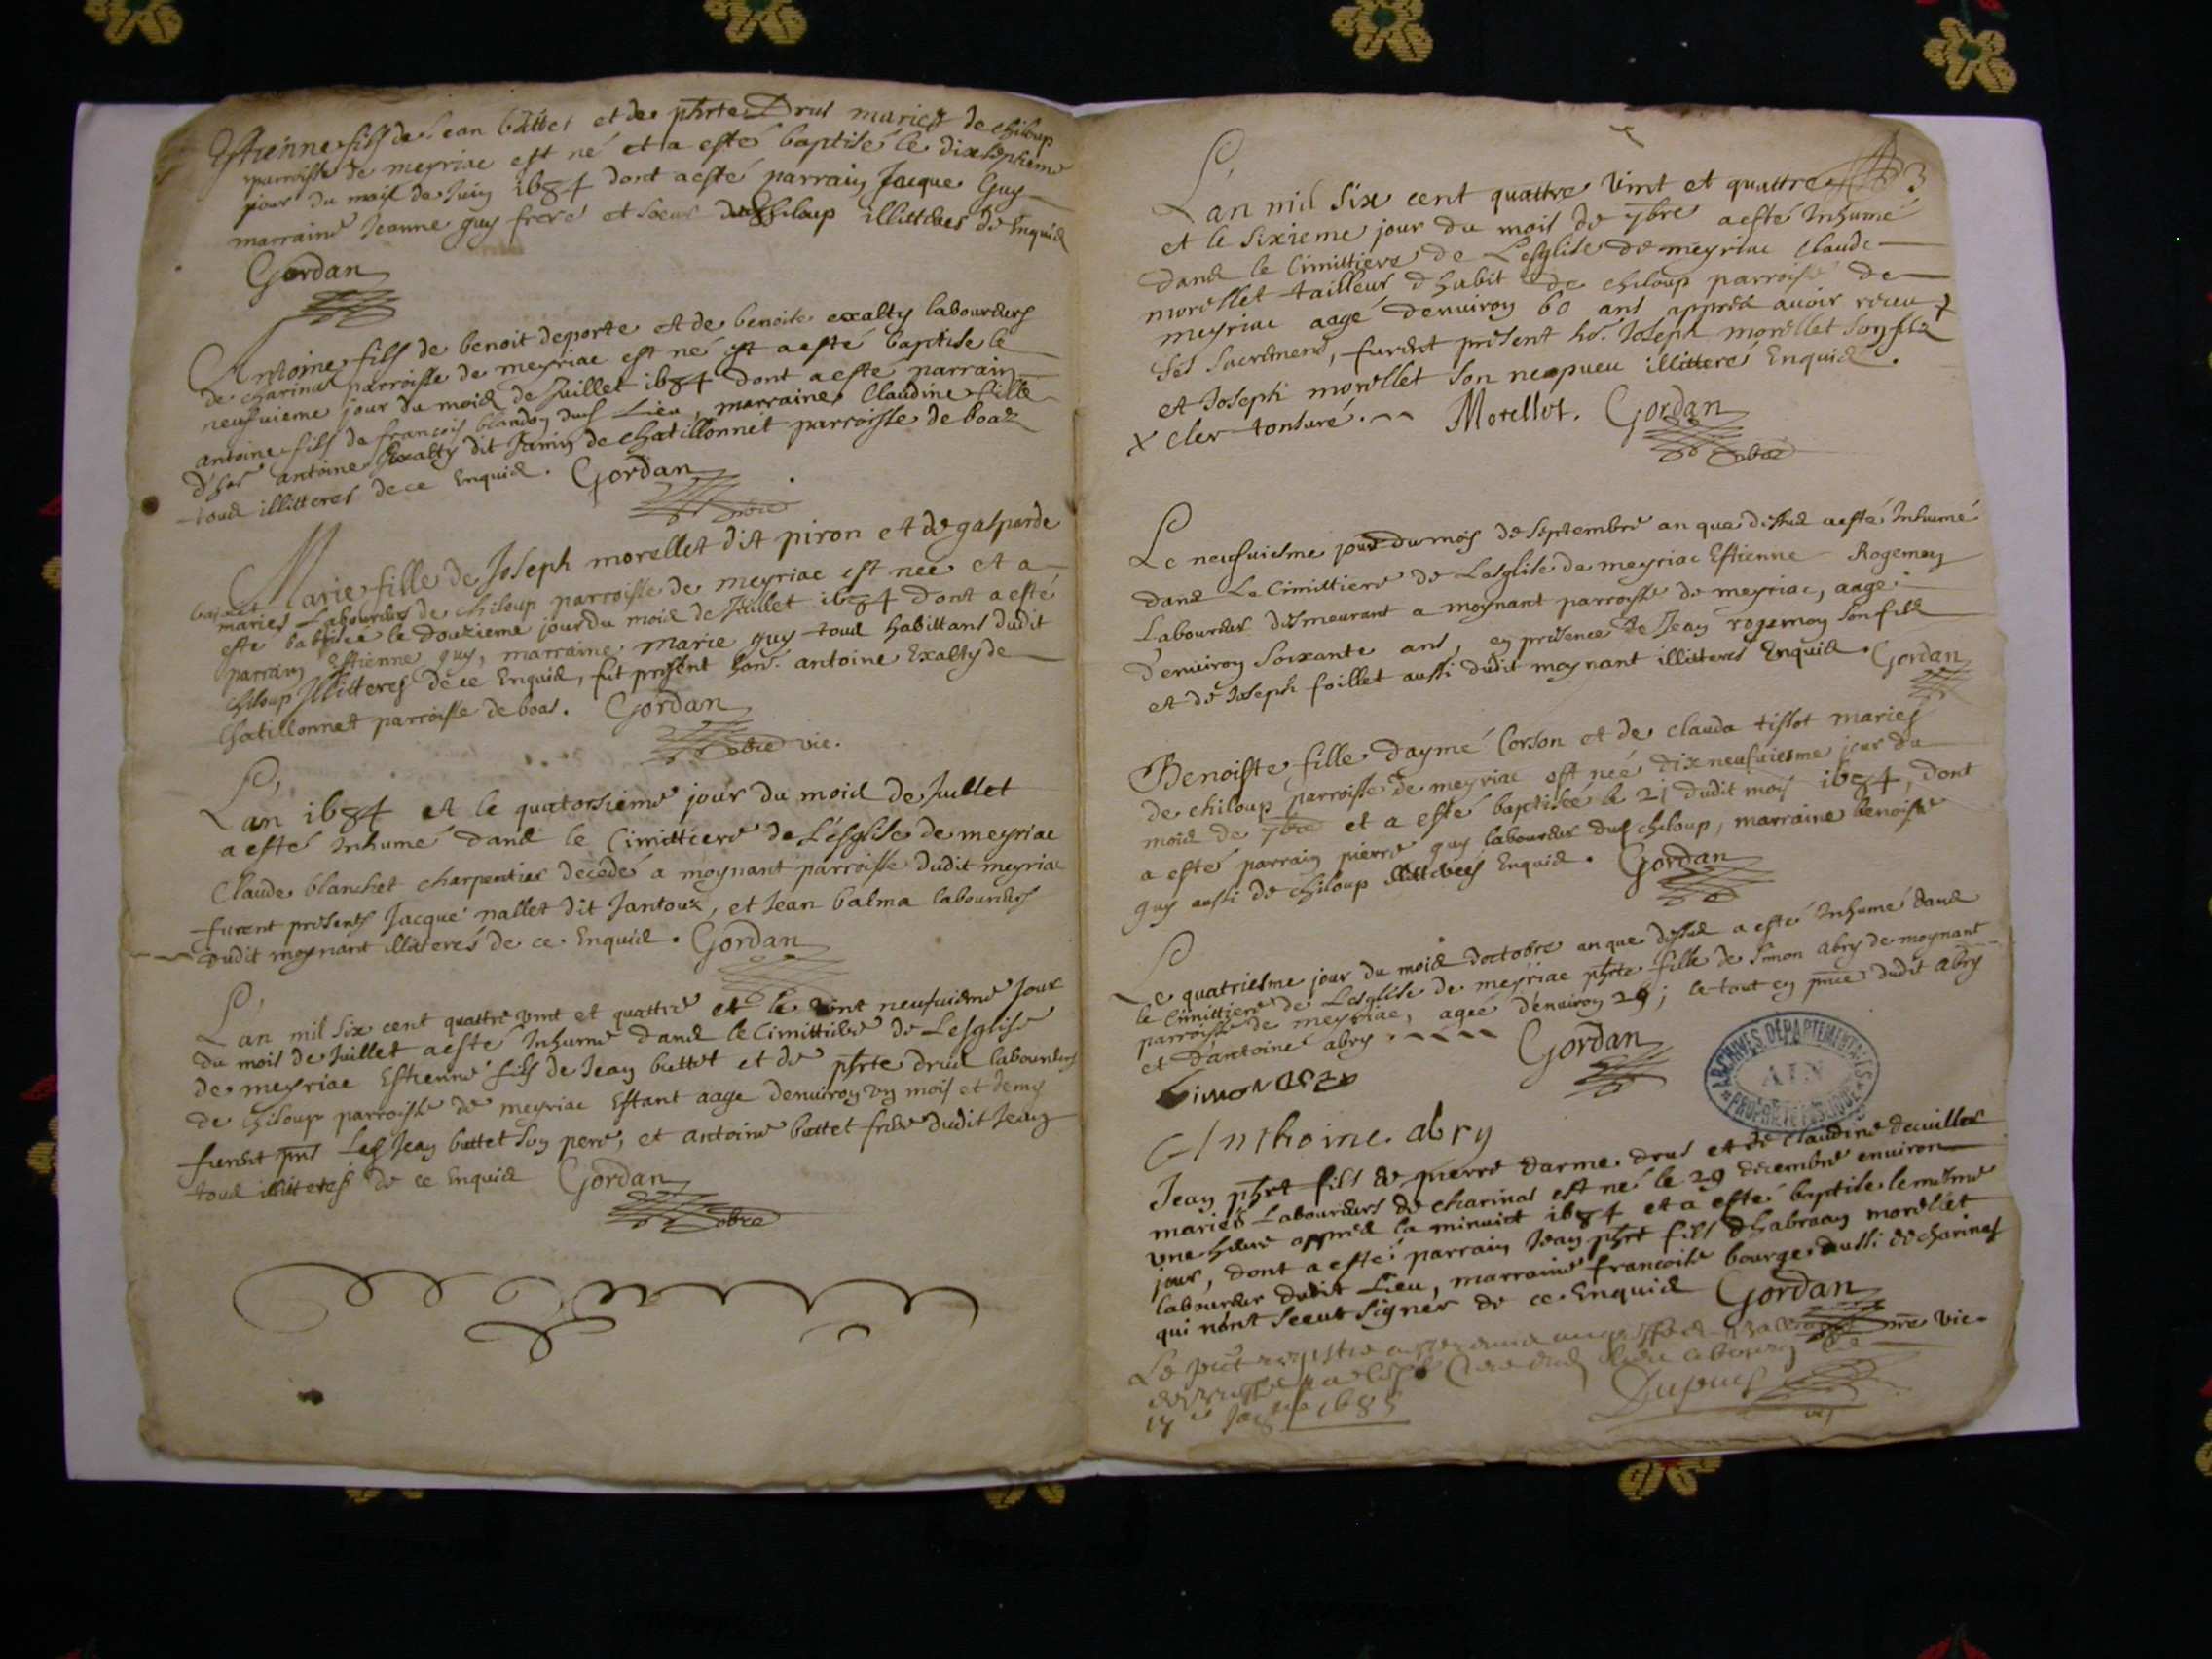 Estienne fils de Jean buttet et de phrte Drus mariez de chiloup
parroisse de meyriac est né et a esté baptisé le dixseptieme
jour du mois de Juin 1684 dont a esté parrain Jacque Guy
marraine Jeanne guy frere et soeur dud chiloup illitteres de Enquis
Gordan
Antoine fils de benoit deporte et de benoite exalty laboureurs
de charinas parroisse de meyriac est né et a esté baptise le
neufuieme jour du mois de Juillet 1684 dont a esté parrain
antoine fils de francois blandon dud Lieu, marraine Claudine fille
d'hoe antoine Exalty dit Jamin de chatillonnet parroisse de boaz
tous illitteres de ce Enquis. Gordan
Marie fille de Joseph morellet dit piron et de gasparde
bajat maries Laboureurs de chiloup parroisse de meyriac est née et a
esté baptisée le douzieme jour du mois de Juillet 1684 dont a esté
parrain Estienne guy, marraine marie guy tous habittans dudit
chiloup Illitteres de ce Enquis, fut present hon. antoine Exalty de
chatillonnet parroisse de boas. Gordan
vic.
Lan 1684 et le quatorsieme jour du mois de Juillet
a esté Inhumé dans le Cimittiere de L'esglise de meyriac
Claude blanchet charpentier decedé a moynant parroisse dudit meyriac
furent presents Jacque nallet dit Jantoux, et Jean balma laboureurs
dudit moynant illiteres de ce Enquis. Gordan
Lan mil six cent quattre vint et quattre et le vint neufuieme Jour
du mois de Juillet a esté Inhume dans le Cimittiere de Lesglise
de meyriac Estienne fils de Jean buttet et de phrte drus laboureurs
de chiloup parroisse de meyriac Estant aage denuiron un mois et demy
furent pnts Led Jean buttet son pere, et antoine buttet frere dudit Jean
tous illiteres de ce Enquis Gordan
3
Lan mil six cent quattre vint et quattre
et le sixieme jour du mois de 7bre a esté Inhumé
dans le Cimittiere de Lesglise de meyriac Claude
morellet tailleur d'habit de chiloup parroisse de
meyriac aagé denuiron 60 ans appres auoir receu
ses sacremens, furent present hoe. Joseph morellet son fils x
et Joseph morellet son nepueu illitteres Enquis.
x cler tonsuré. Morellet. Gordan
Le neufuiesme jour du mois de septembre an que dessus a esté Inhumé
dans Le Cimittiere de Lesglise de meyriac Estienne Rogemoy
Laboureur demeurant a moynant parroisse de meyriac, aagé
denuiron soixante ans, en presence de Jean rogemoy son fils
et de Joseph foillet aussi dudit moynant illitteres Enquis. Gordan
Benoiste fille daymé Corson et de clauda tissot maries
de chiloup parroisse de meyriac est née dixneufuiesme jour du
mois de 7bre et a esté baptisée le 21 dudit mois 1684, dont
a esté parrain pierre guy laboureur dud chiloup, marraine benoiste
guy aussi de chiloup Enquis. Gordan
Le quatriesme jour du mois doctobre an que dessus a esté Inhumé dans
le Cimittiere de Lesglise de meyriac phrte fille de simon abry de moynant
parroisse de meyriac, agée denuiron 29; le tout en pnce dudit abry
et dantoine abry. Gordan
Simon abry
Anthoine abry
ARCHIVES DÉPARTEMENTALES
AIN
PROPRIÉTÉ PUBLIQUE
Jean phrt fils de pierre darme drus et de Claudine decuillex
mariés Laboureurs de charinas est né le 29 decembre environ
une heure appres la minuict 1684 et a esté baptise le mesme
jour, dont a esté parrain Jean phrt fils dhabraam morellet
laboureur dudit Lieu, marraine francoise bourge aussi de charinas
qui n'ont sceut signer de ce Enquis Gordan
vic.
Le pnt registre
1685
Dupuis